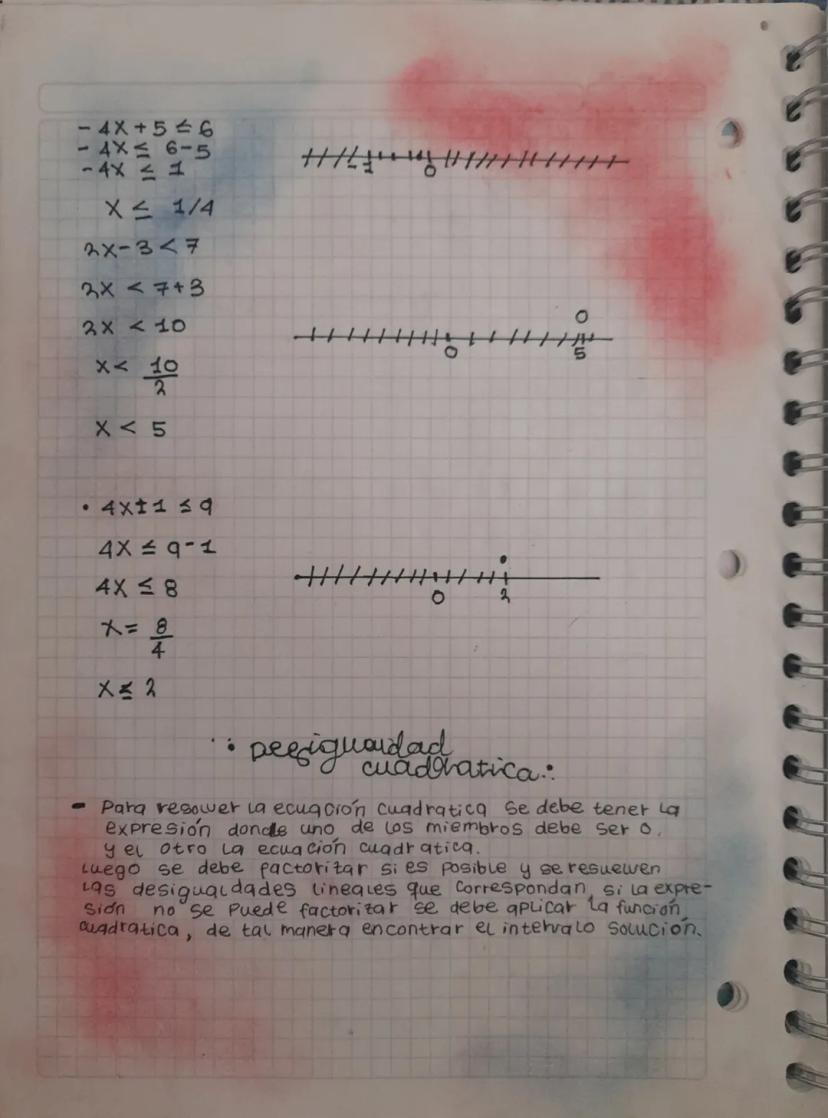 - 4x + 5 ≤ 6
- 4x ≤ 6-5
- 4x ≤ 1
x ≤ 1/4
-1 0
2x - 3 < 7
2x < 7+3
2x < 10
x < 10/2
x < 5
0
0 5
• 4x ± 1 ≤ 9
4x ≤ 9-1
4x ≤ 8
x = 8/4
x ≤ 2
0 2
∴ Desigualdad
cuadratica ∴
- Para resolver la ecuación cuadratica se debe tener la
expresión donde uno de los miembros debe ser 0,
y el otro la ecuación cuadratica.
Luego se debe factorizar si es posible y se resuelven
las desigualdades lineales que correspondan, si la expre-
sión no se puede factorizar se debe aplicar la función
cuadratica, de tal manera encontrar el intervalo solución.